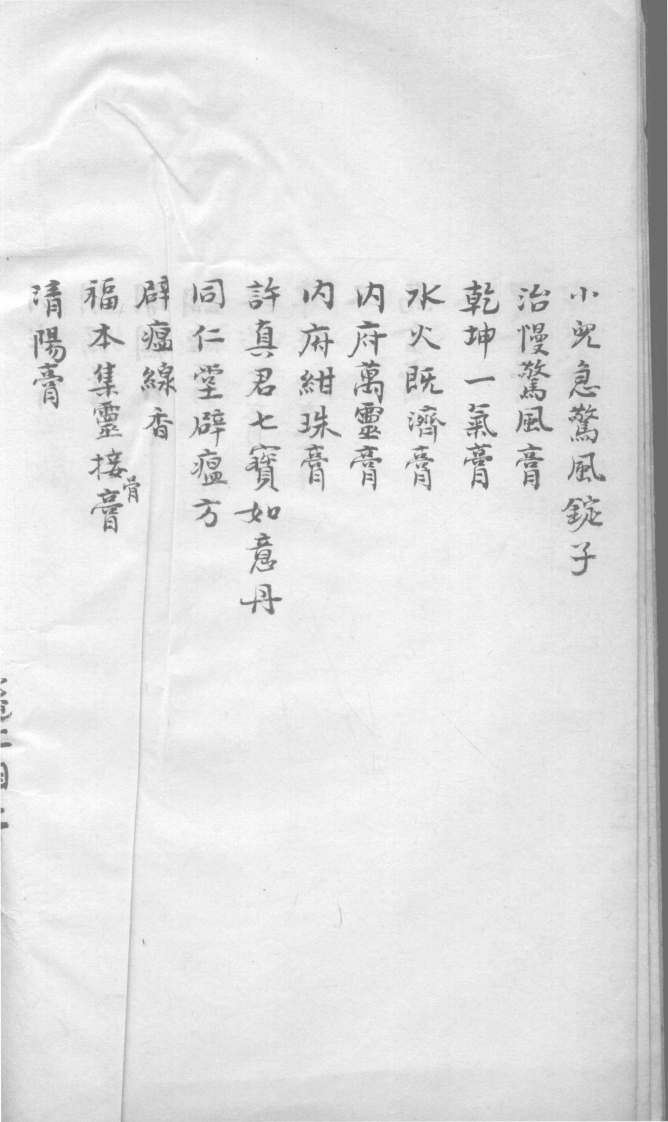 小兒急驚風錠子
治慢驚風膏
乾坤一氣膏
水火既濟膏
內府萬靈膏
內府紺珠膏
許真君七寶如意丹
同仁堂辟瘟方
辟瘟線香
福本集靈接骨膏
陽膏